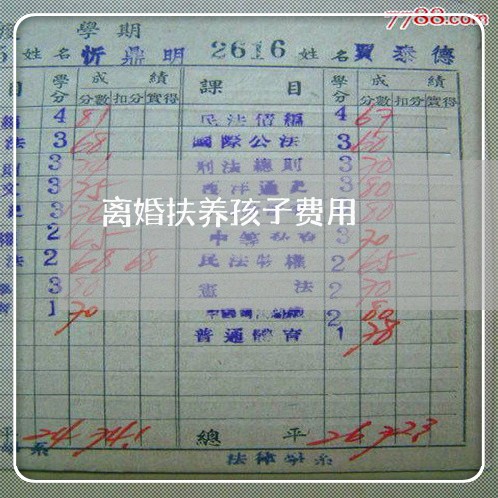 7788.com
學期
姓名 忻鼎明 2616 姓名 賈泰德
目 學分 成績 課目 學分 成績
分數 扣分 實得 分數 扣分 實得
4 81 民法債編 4 67
法 3 68 國際公法 3 60
3 刑法總則 3 70
3 75 西洋通史 3 80
離婚扶养孩子费用
2 65 3 70
法 2 68 68 民法物權 2 65
3 80 憲法 2 70
1 70 2 80
普通體育 1 78
平 24 74.1 總平 26 72.3
系 法律學系